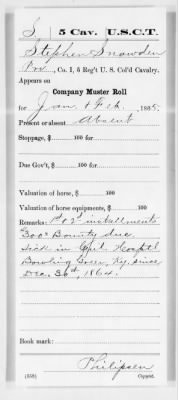 S | 5 Cav. | U.S.C.T.
Stephen Snowden
Pvt, Co. I, 5 Reg't U. S. Col'd Cavalry.
Appears on
Company Muster Roll
for Jan & Feb, 1865.
Present or absent Absent
Stoppage, $ 100 for
Due Gov't, $ 100 for
Valuation of horse, $ 100
Valuation of horse equipments, $ 100
Remarks: 1st & 2d installments
$300 Bounty due
Sick in Genl Hosptl
Bowling Green, Ky. since
Dec. 30th, 1864.
Book mark:
Philipsen
(858) Copyist.